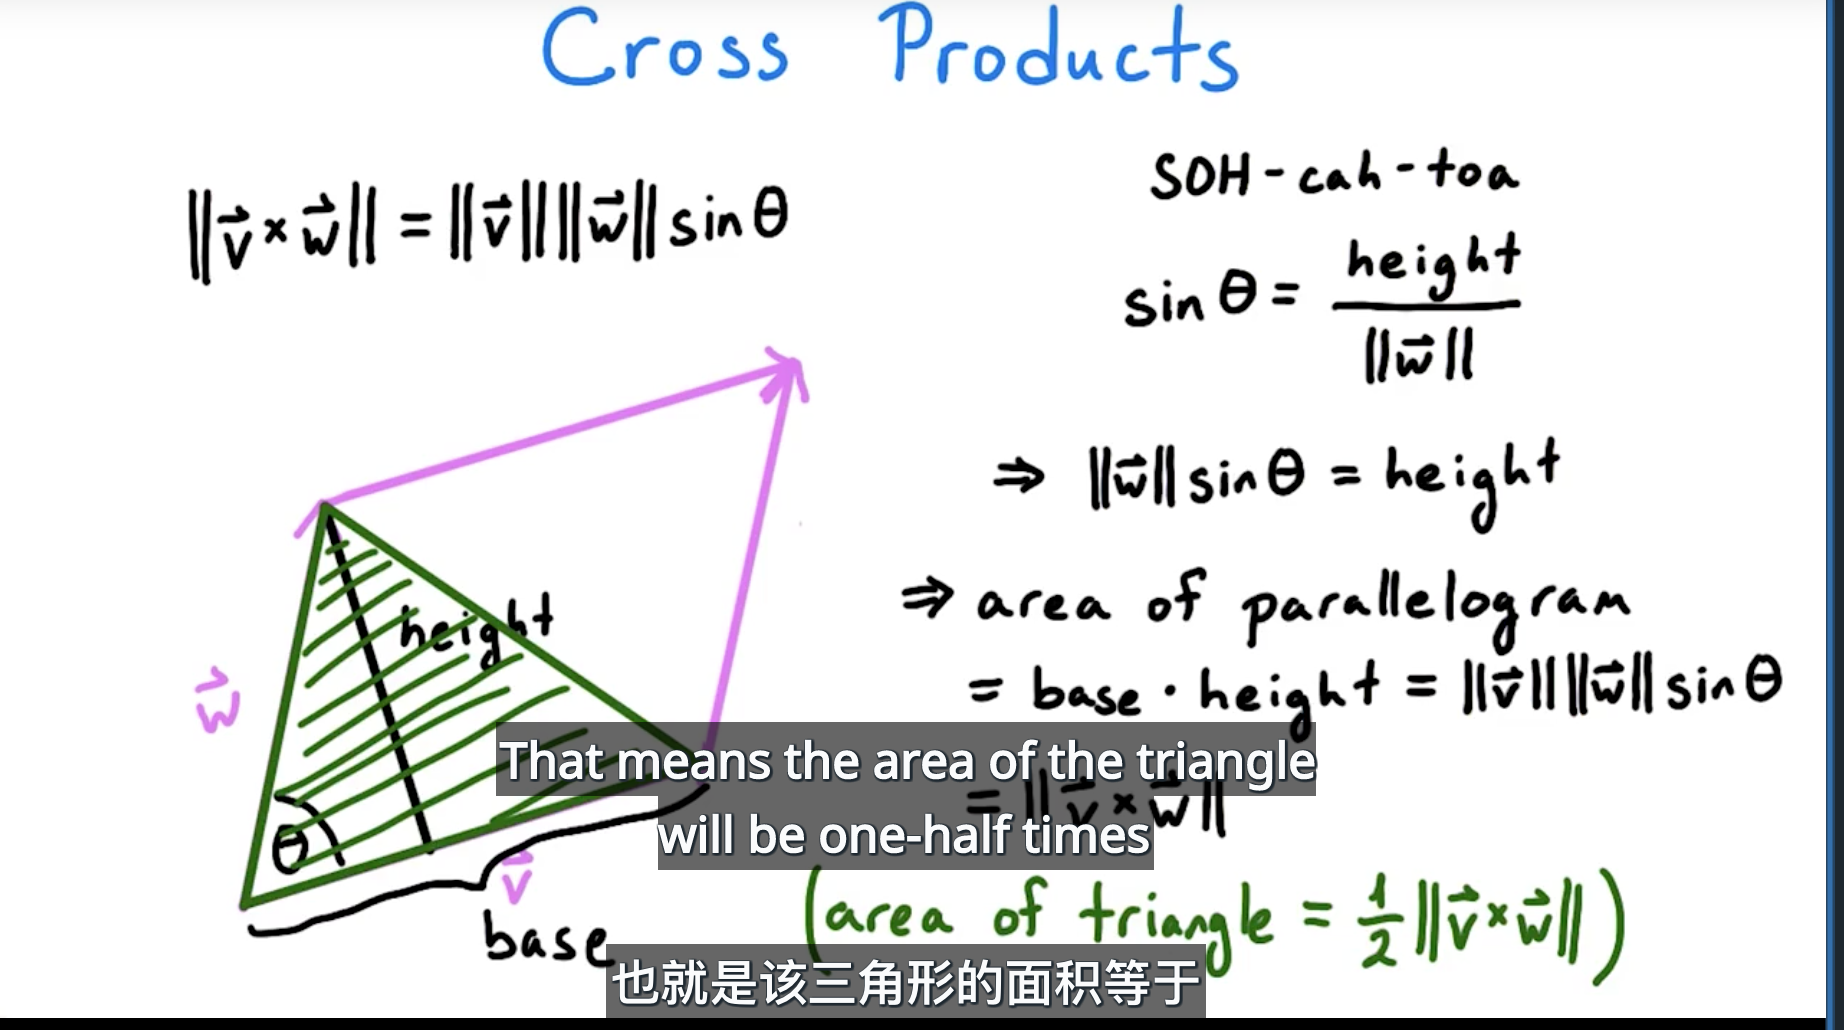 Cross Products
‖v⃗ × w⃗‖ = ‖v⃗‖ ‖w⃗‖ sin θ
SOH - cah - toa
sin θ = height / ‖w⃗‖
⇒ ‖w⃗‖ sin θ = height
⇒ area of parallelogram
= base · height = ‖v⃗‖ ‖w⃗‖ sin θ
= ‖v⃗ × w⃗‖
(area of triangle = 1/2 ‖v⃗ × w⃗‖)
height
w⃗
θ
v⃗
base
That means the area of the triangle
will be one-half times
也就是该三角形的面积等于